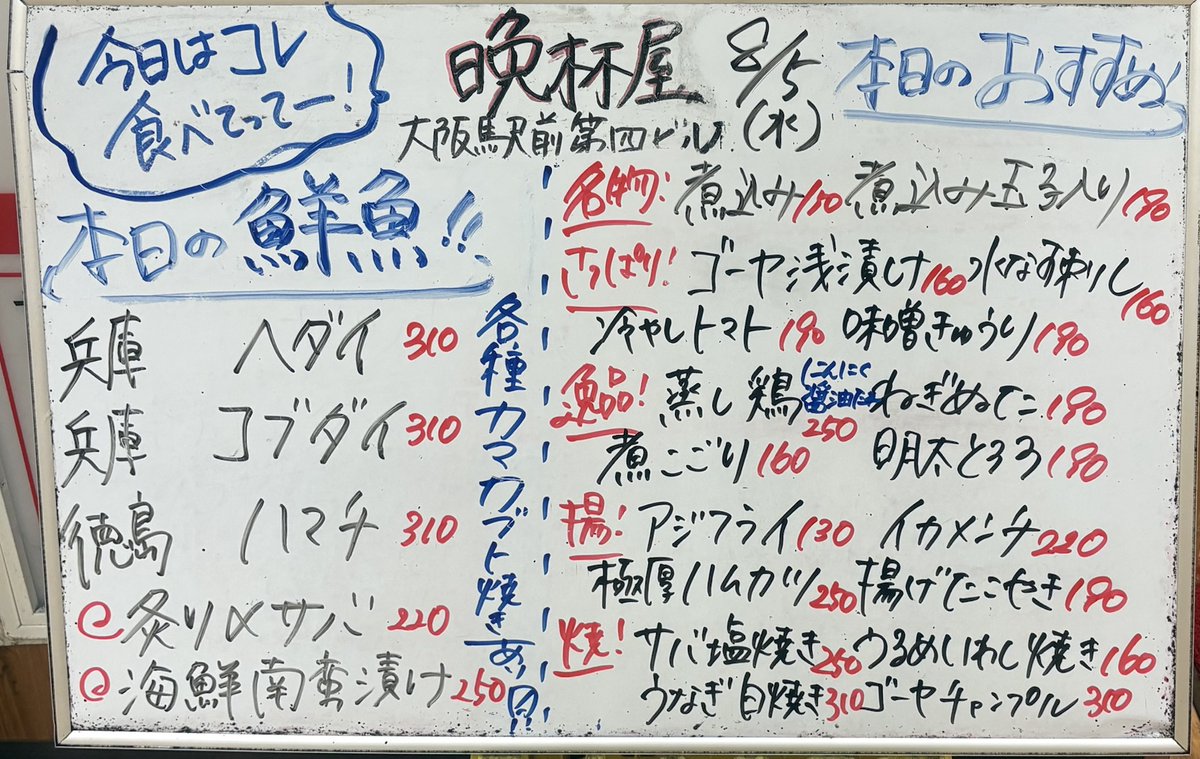 今日はコレ
食べてってー!
晩杯屋
大阪駅前第四ビル
8/5
(水)
本日のおすすめ
本日の鮮魚!!
兵庫 ヘダイ 310
兵庫 コブダイ 310
徳島 ハマチ 310
炙り〆サバ 220
海鮮南蛮漬け 250
各種カマカブト焼きあり〼!!
名物! 煮込み 150 煮込み玉子入り 190
さっぱり! ゴーヤ浅漬け 160 水なす刺し 160
冷やしトマト 190 味噌きゅうり 190
逸品! 蒸し鶏 にんにく醤油だれ 250 ねぎぬた 190
煮こごり 160 明太とろろ 190
揚! アジフライ 130 イカメンチ 220
極厚ハムカツ 250 揚げたこやき 190
焼! サバ塩焼き 250 うるめいわし焼き 160
うなぎ白焼き 310 ゴーヤチャンプル 310